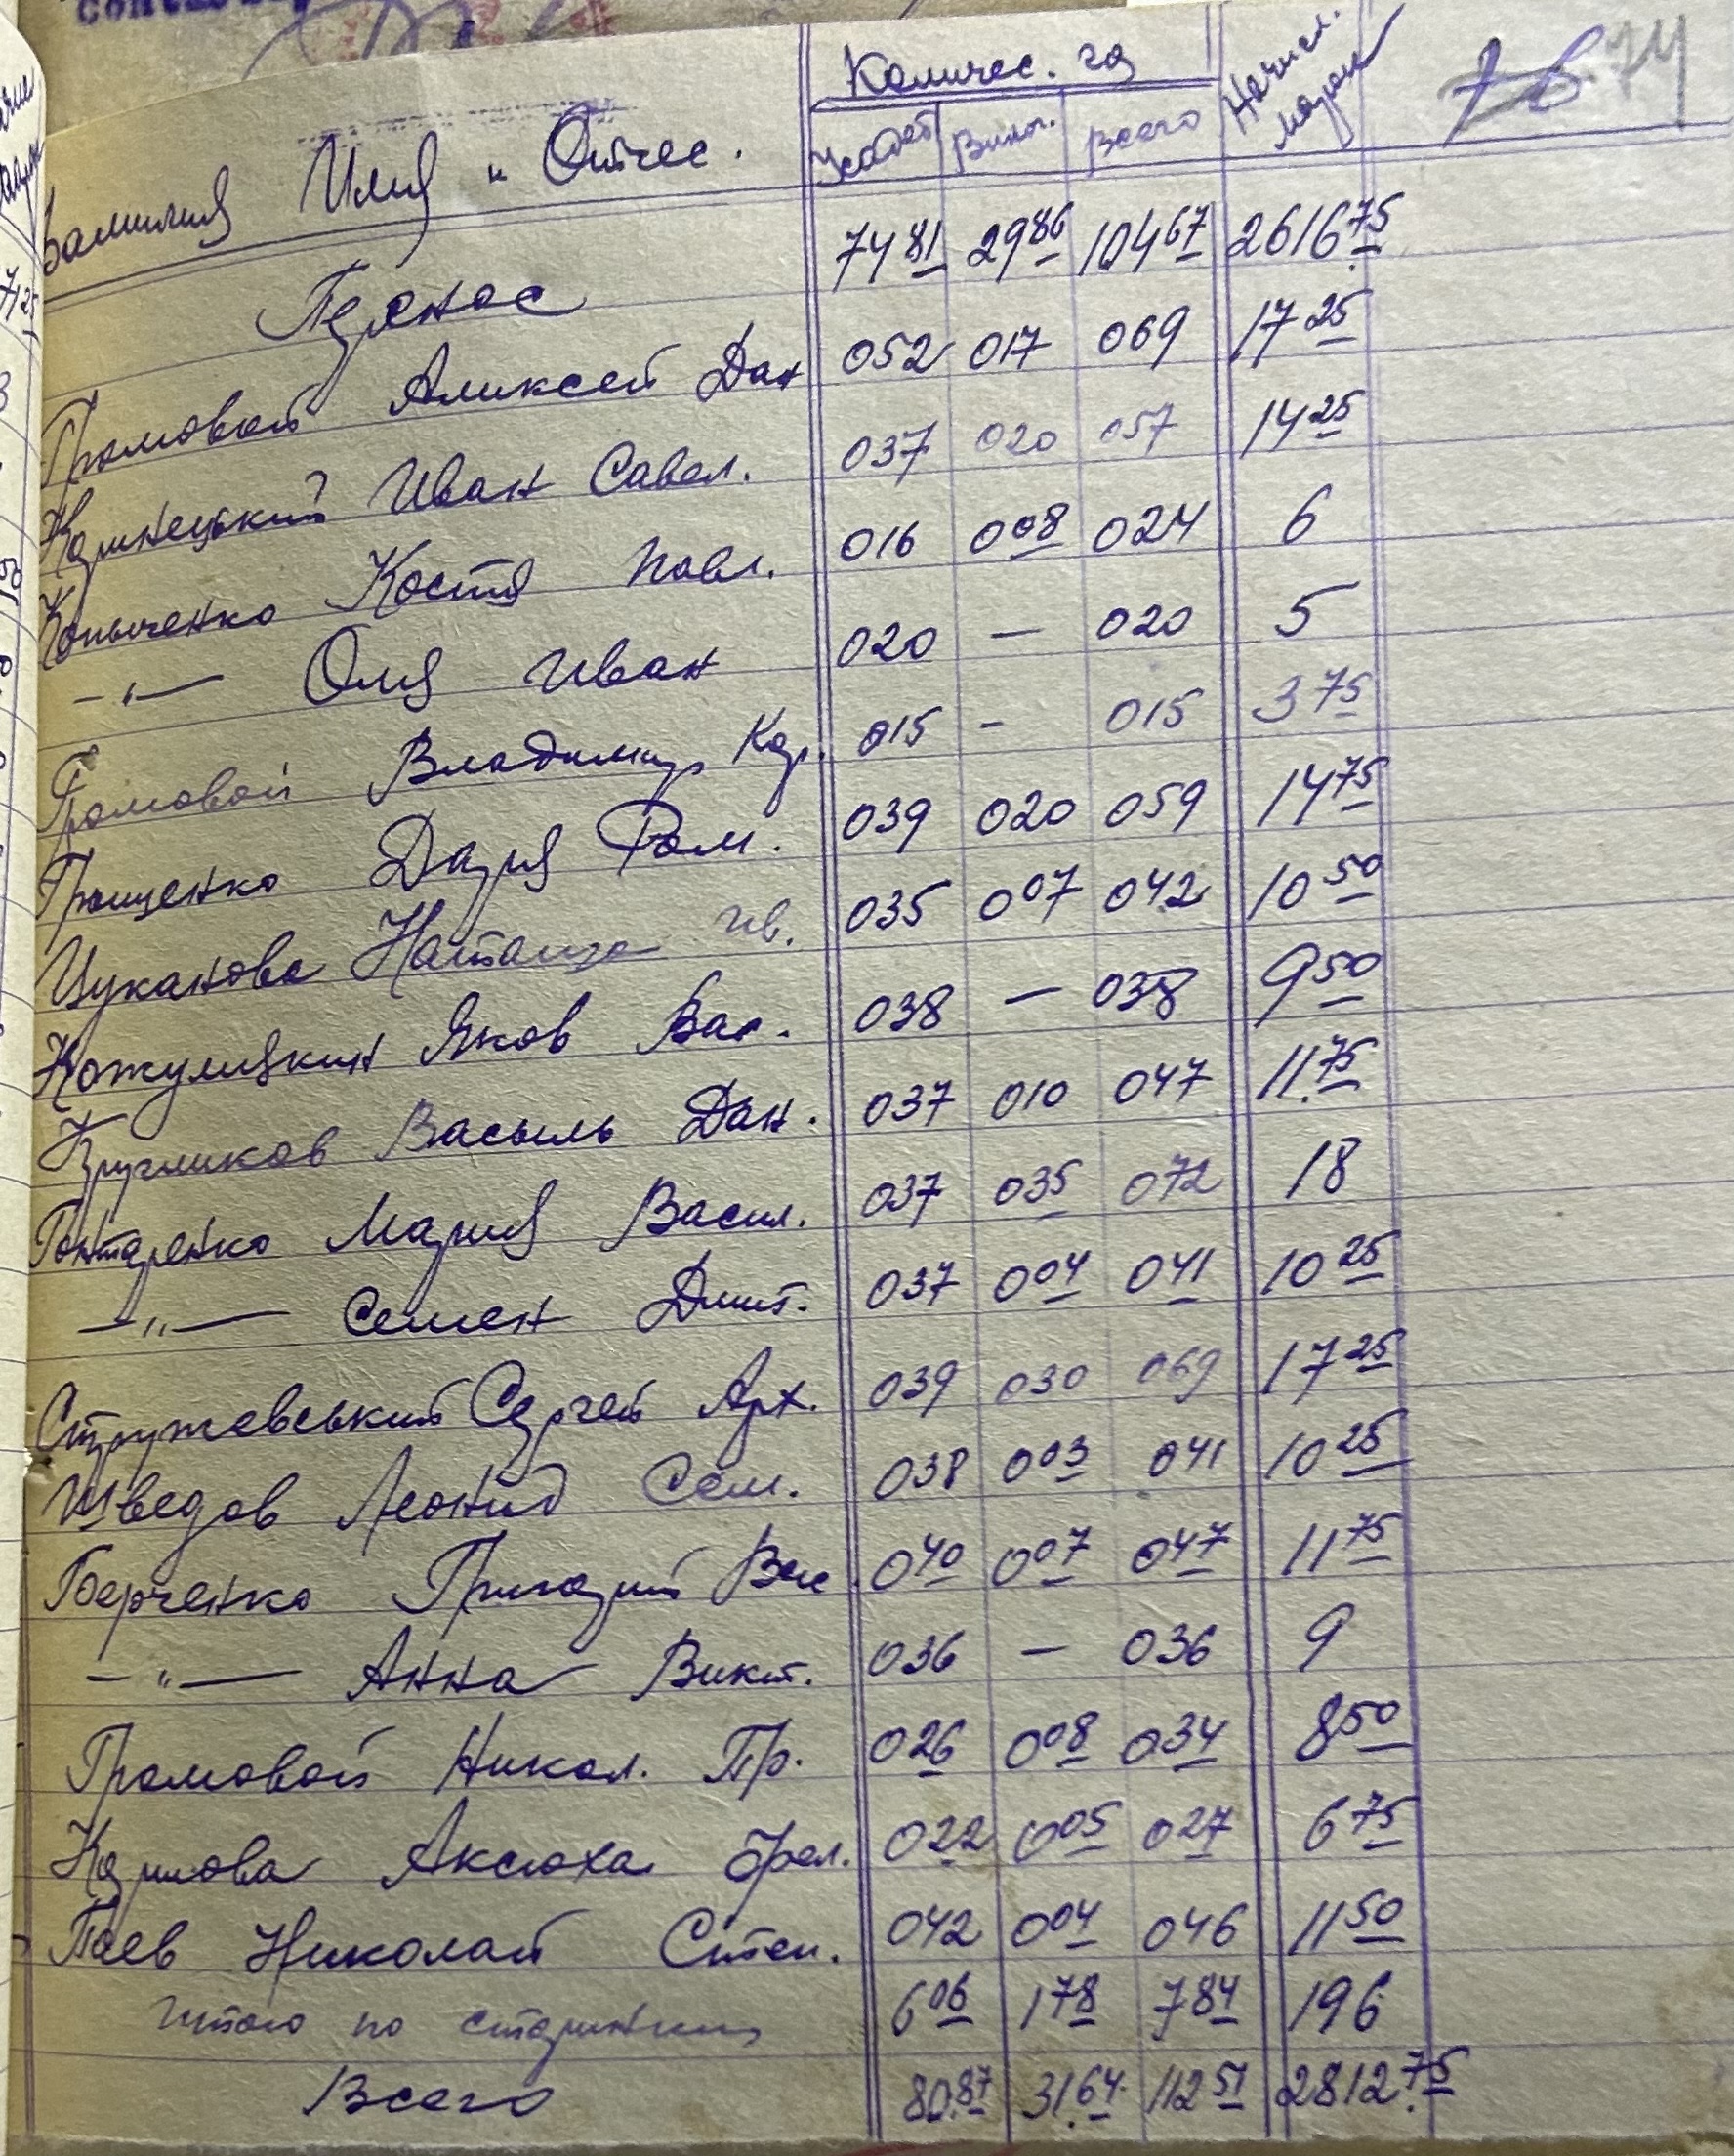 Количес. га
Начисл. марок
74
Фамилия Имя и Отчес. Усадеб Вип. Всего
Перенос 74 81 29 86 104 67 2616 75
Громовой Алексей Дан 052 017 069 17 25
Иван Савел. 037 020 057 14 25
Копыченко Костя Павл. 016 008 024 6
— " — Оля Иван 020 — 020 5
Громовой Владимир Кар. 015 - 015 3 75
Грищенко Дария Ром. 039 020 059 14 75
Цуканова Ив. 035 007 042 10 50
Яков Вас. 038 — 038 9 50
Кругликов Васыль Дан. 037 010 047 11.75
Гонтаренко Мария Васил. 037 035 072 18
— " — Семен Дмит. 037 004 041 10 25
Стружевський Сергей Арх. 039 030 069 17 25
Шведов Леонид Сем. 038 003 041 10 25
Григорий Вас 040 007 047 11 75
— " — Анна Викт. 036 — 036 9
Громовой Никол. Гр. 026 008 034 8 50
022 005 027 6 75
Николай Степ. 042 004 046 11 50
Итого по странички 6 06 1 78 7 84 196
Всего 80.87 31.64 112 51 2812.75